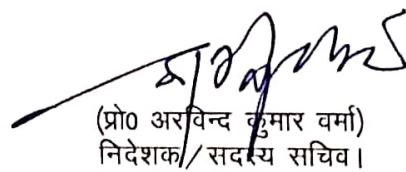 (प्रो0 अरविन्द कुमार वर्मा)
निदेशक/सदस्य सचिव।